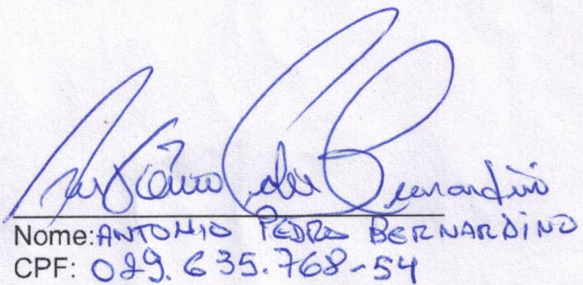 Antônio Pedro Bernardino
Nome: ANTONIO PEDRO BERNARDINO
CPF: 029.635.768-54